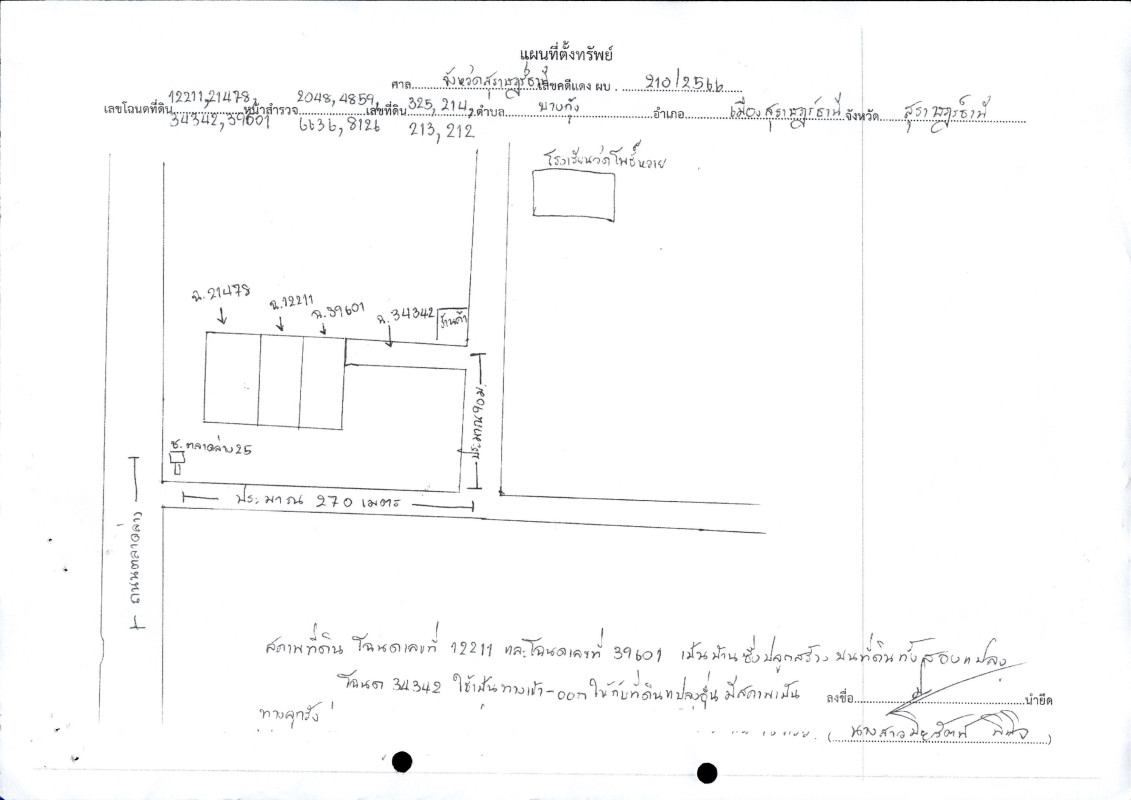 แผนที่ตั้งทรัพย์
ศาล จังหวัดสุราษฎร์ธานี เลขคดีแดง ผบ. 210/2566
เลขโฉนดที่ดิน 12211,21478, หน้าสำรวจ 2048,4859, เลขที่ดิน 325, 214, ตำบล บางกุ้ง อำเภอ เมืองสุราษฎร์ธานี จังหวัด สุราษฎร์ธานี
34342,39601 6636,8126 213, 212
โรงเรียนวัดโพธิ์หวาย
ฉ.21478
ฉ.12211
ฉ.39601
ฉ.34342
ร้านค้า
ประมาณ 90 ม.
ซ.ตลาดล่าง 25
ประมาณ 270 เมตร
ถนนตลาดล่าง
สภาพที่ดิน โฉนดเลขที่ 12211 และโฉนดเลขที่ 39601 เป็นบ้านซึ่งปลูกสร้างบนที่ดินทั้งสองแปลง
โฉนด 34342 ใช้เป็นทางเข้า-ออกให้กับที่ดินแปลงอื่น มีสภาพเป็น
ทางลูกรัง
ลงชื่อ นำยึด
( นางสาว )